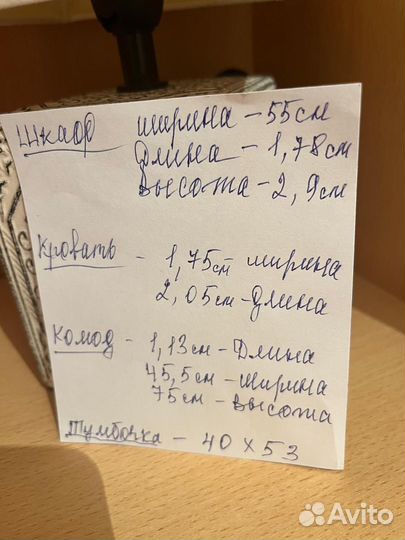 Шкаф ширина - 55см
Длина - 1,78см
высота - 2,9см
Кровать - 1,75см ширина
2,05см - длина
Комод - 1,13см - Длина
45,5см - ширина
75см - высота
Тумбочка - 40 х 53
Avito